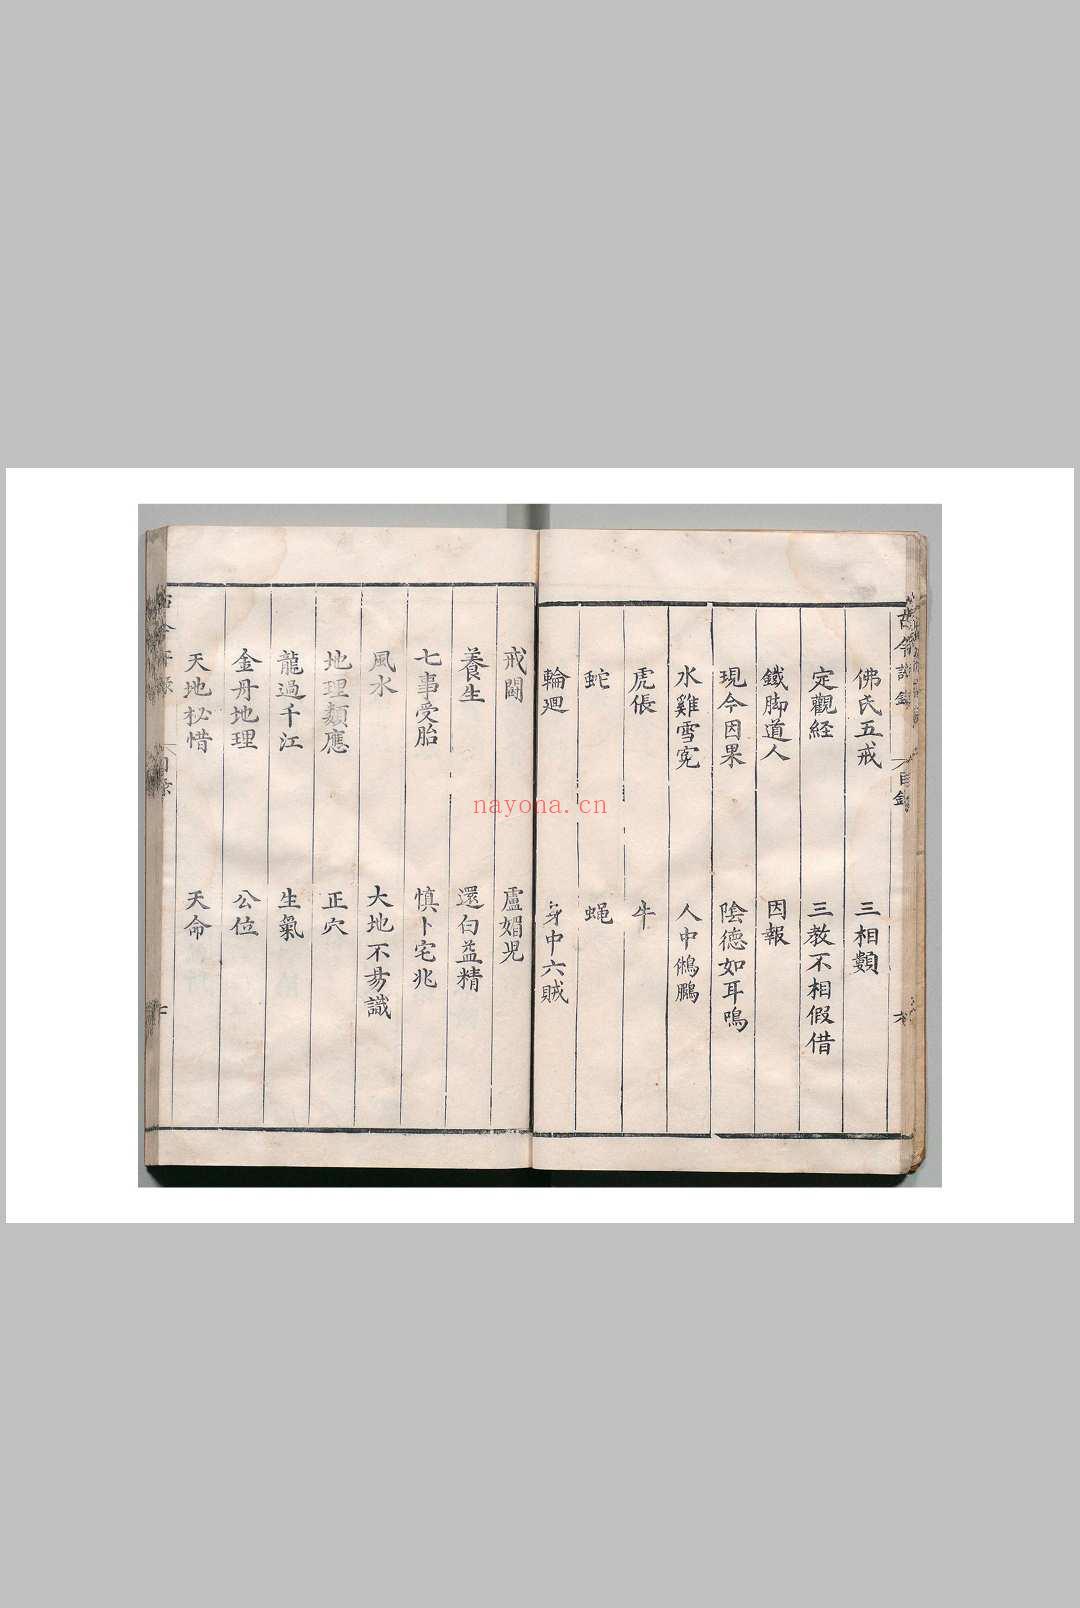 佛氏五戒 三相數
定觀経 三教不相假借
鐵脚道人 因報
現今因果 陰德如耳鳴
水雞雪寃 人中鵂鵬
虎倀 牛
蛇 蝇
輪廻 身中六賊
戒鬭 盧媚児
養生 還白益精
七事受胎 慎卜宅兆
風水 大地不易識
地理類應 正穴
龍過千江 生氣
金丹地理 公位
天地秘惜 天命
目錄
六
七
nayona.cn